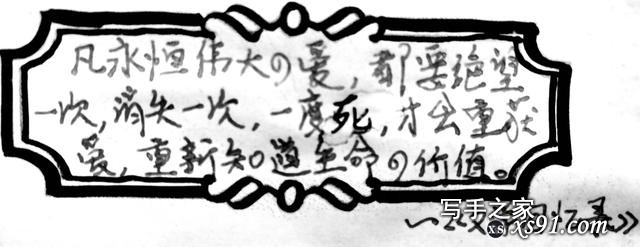 凡永恒伟大の爱，都要绝望
一次，消失一次，一度死，才会重获
爱，重新知道生命の价值。
写手之家
xs xs91.com